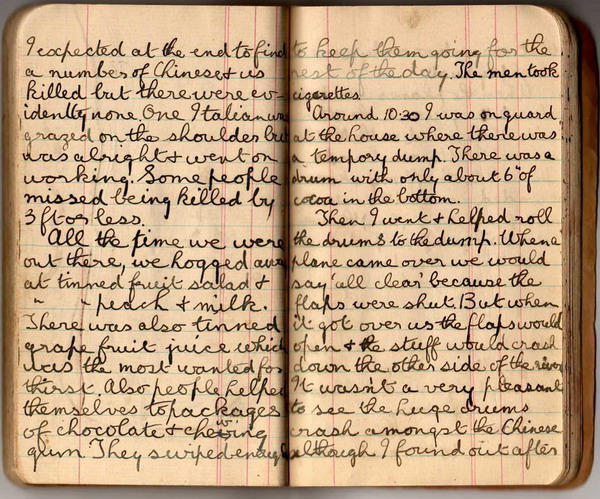 I expected at the end to find
a number of Chinese & us
killed but there were ev-
idently none. One Italian was
grazed on the shoulder but
was alright & went on
working. Some people
missed being killed by
3 ft or less.
All the time we were
out there, we hogged away
at tinned fruit salad &
" " peach & milk.
There was also tinned
grape fruit juice which
was the most wanted for
thirst. Also people helped
themselves to packages
of chocolate & chewing
gum. They swiped enough
to keep them going for the
rest of the day. The men took
cigarettes
Around 10.30 I was on guard
at the house where there was
a tempory dump. There was a
drum with only about 6" of
cocoa in the bottom.
Then I went & helped roll
the drums to the dump. When a
plane came over we would
say 'all clear' because the
flaps were shut. But when
it got over us the flaps would
open & the stuff would crash
down the other side of the river
It wasn't a very pleasant
to see the huge drums
crash amongst the Chinese
although I found out after